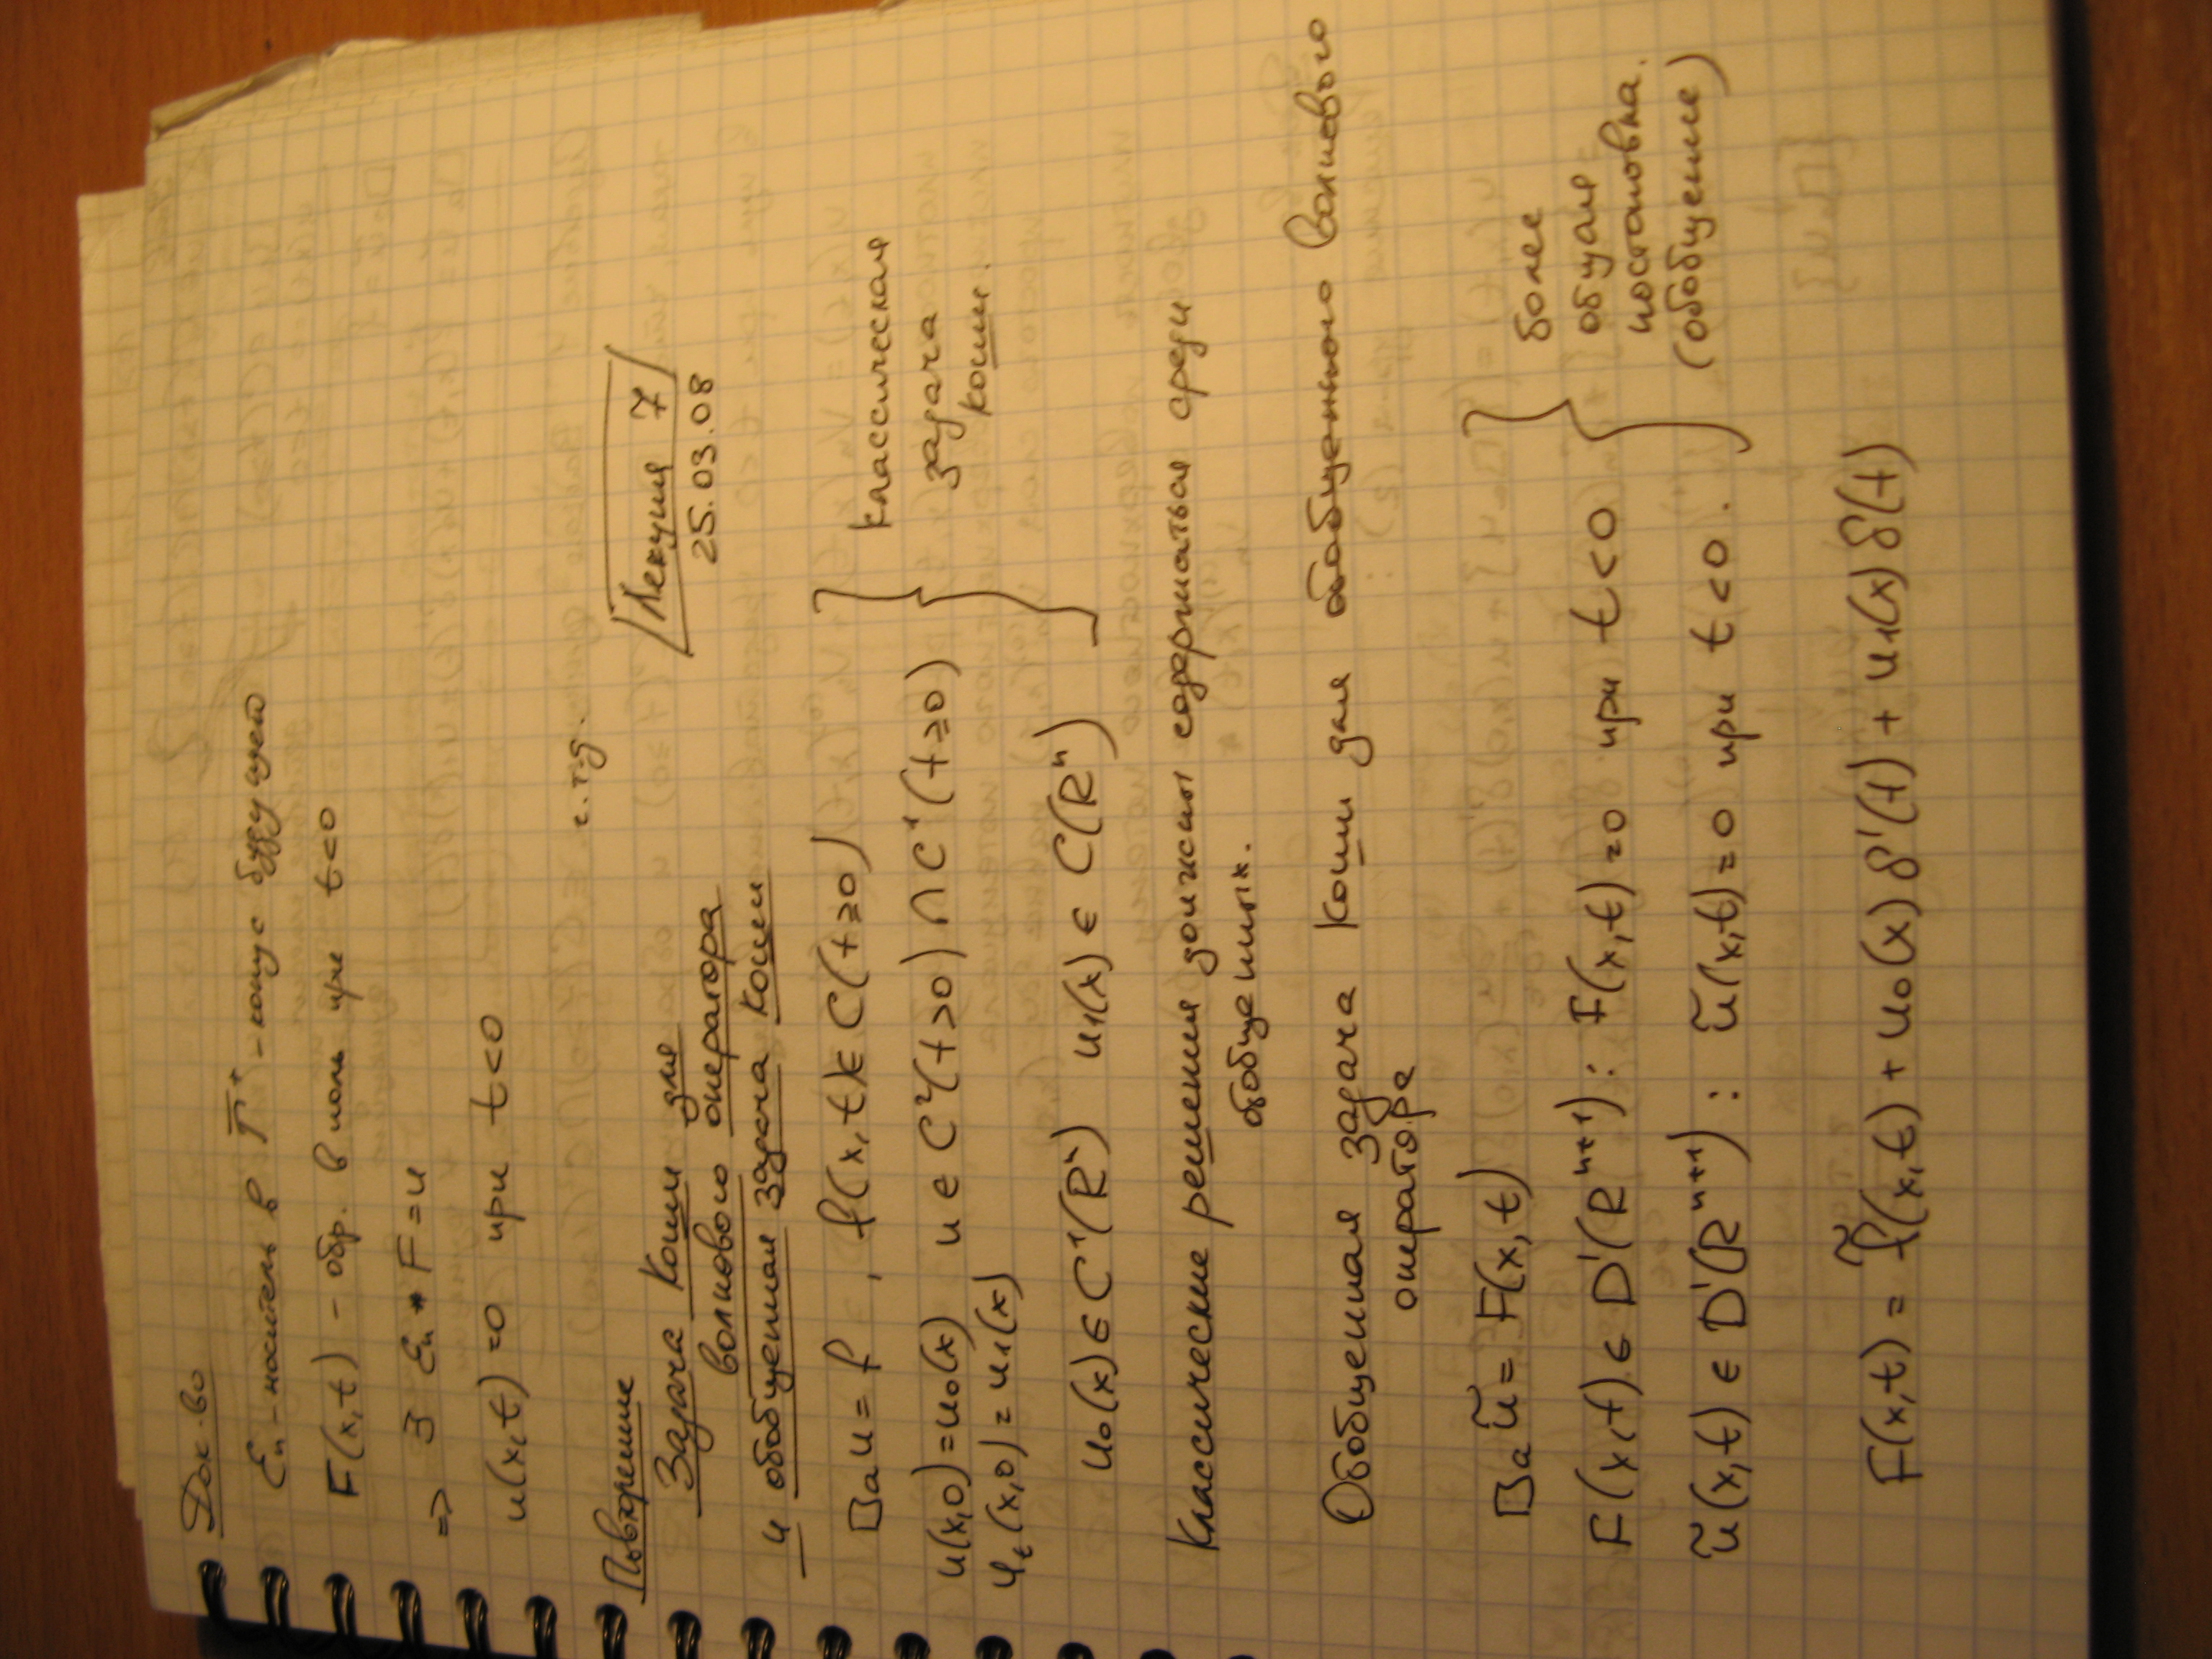 Док-во
ℰₙ - носитель в Γ̅⁺ - конус будущего
F(x,t) - обр. в ноль при t<0
=> ∃ ℰₙ * F = u
u(x,t) = 0 при t<0
ч.т.д.
Лекция 7
25.03.08
Повторение
Задача Коши для
волнового оператора
и обобщенная задача Коши
□ₐu = f, f(x,t) ∈ C(t≥0)
u(x,0) = u₀(x) u ∈ C²(t>0) ∩ C¹(t≥0)
uₜ(x,0) = u₁(x)
u₀(x) ∈ C¹(Rⁿ) u₁(x) ∈ C(Rⁿ)
} классическая
задача
Коши.
Классические решения должны содержаться среди
обобщенных.
Обобщенная задача Коши для обобщенного волнового
оператора
□ₐũ = F(x,t)
F(x,t) ∈ D'(Rⁿ⁺¹): F(x,t)=0 при t<0
ũ(x,t) ∈ D'(Rⁿ⁺¹): ũ(x,t)=0 при t<0.
} более
общая
постановка.
(обобщение)
F(x,t) = f̃(x,t) + u₀(x)δ'(t) + u₁(x)δ(t)